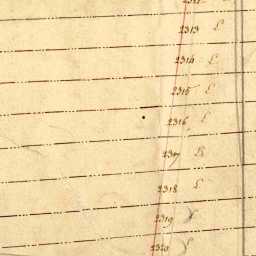 2313 L
2314 L
2315 L
2316 L
2317
2318 L
2319
2320 L